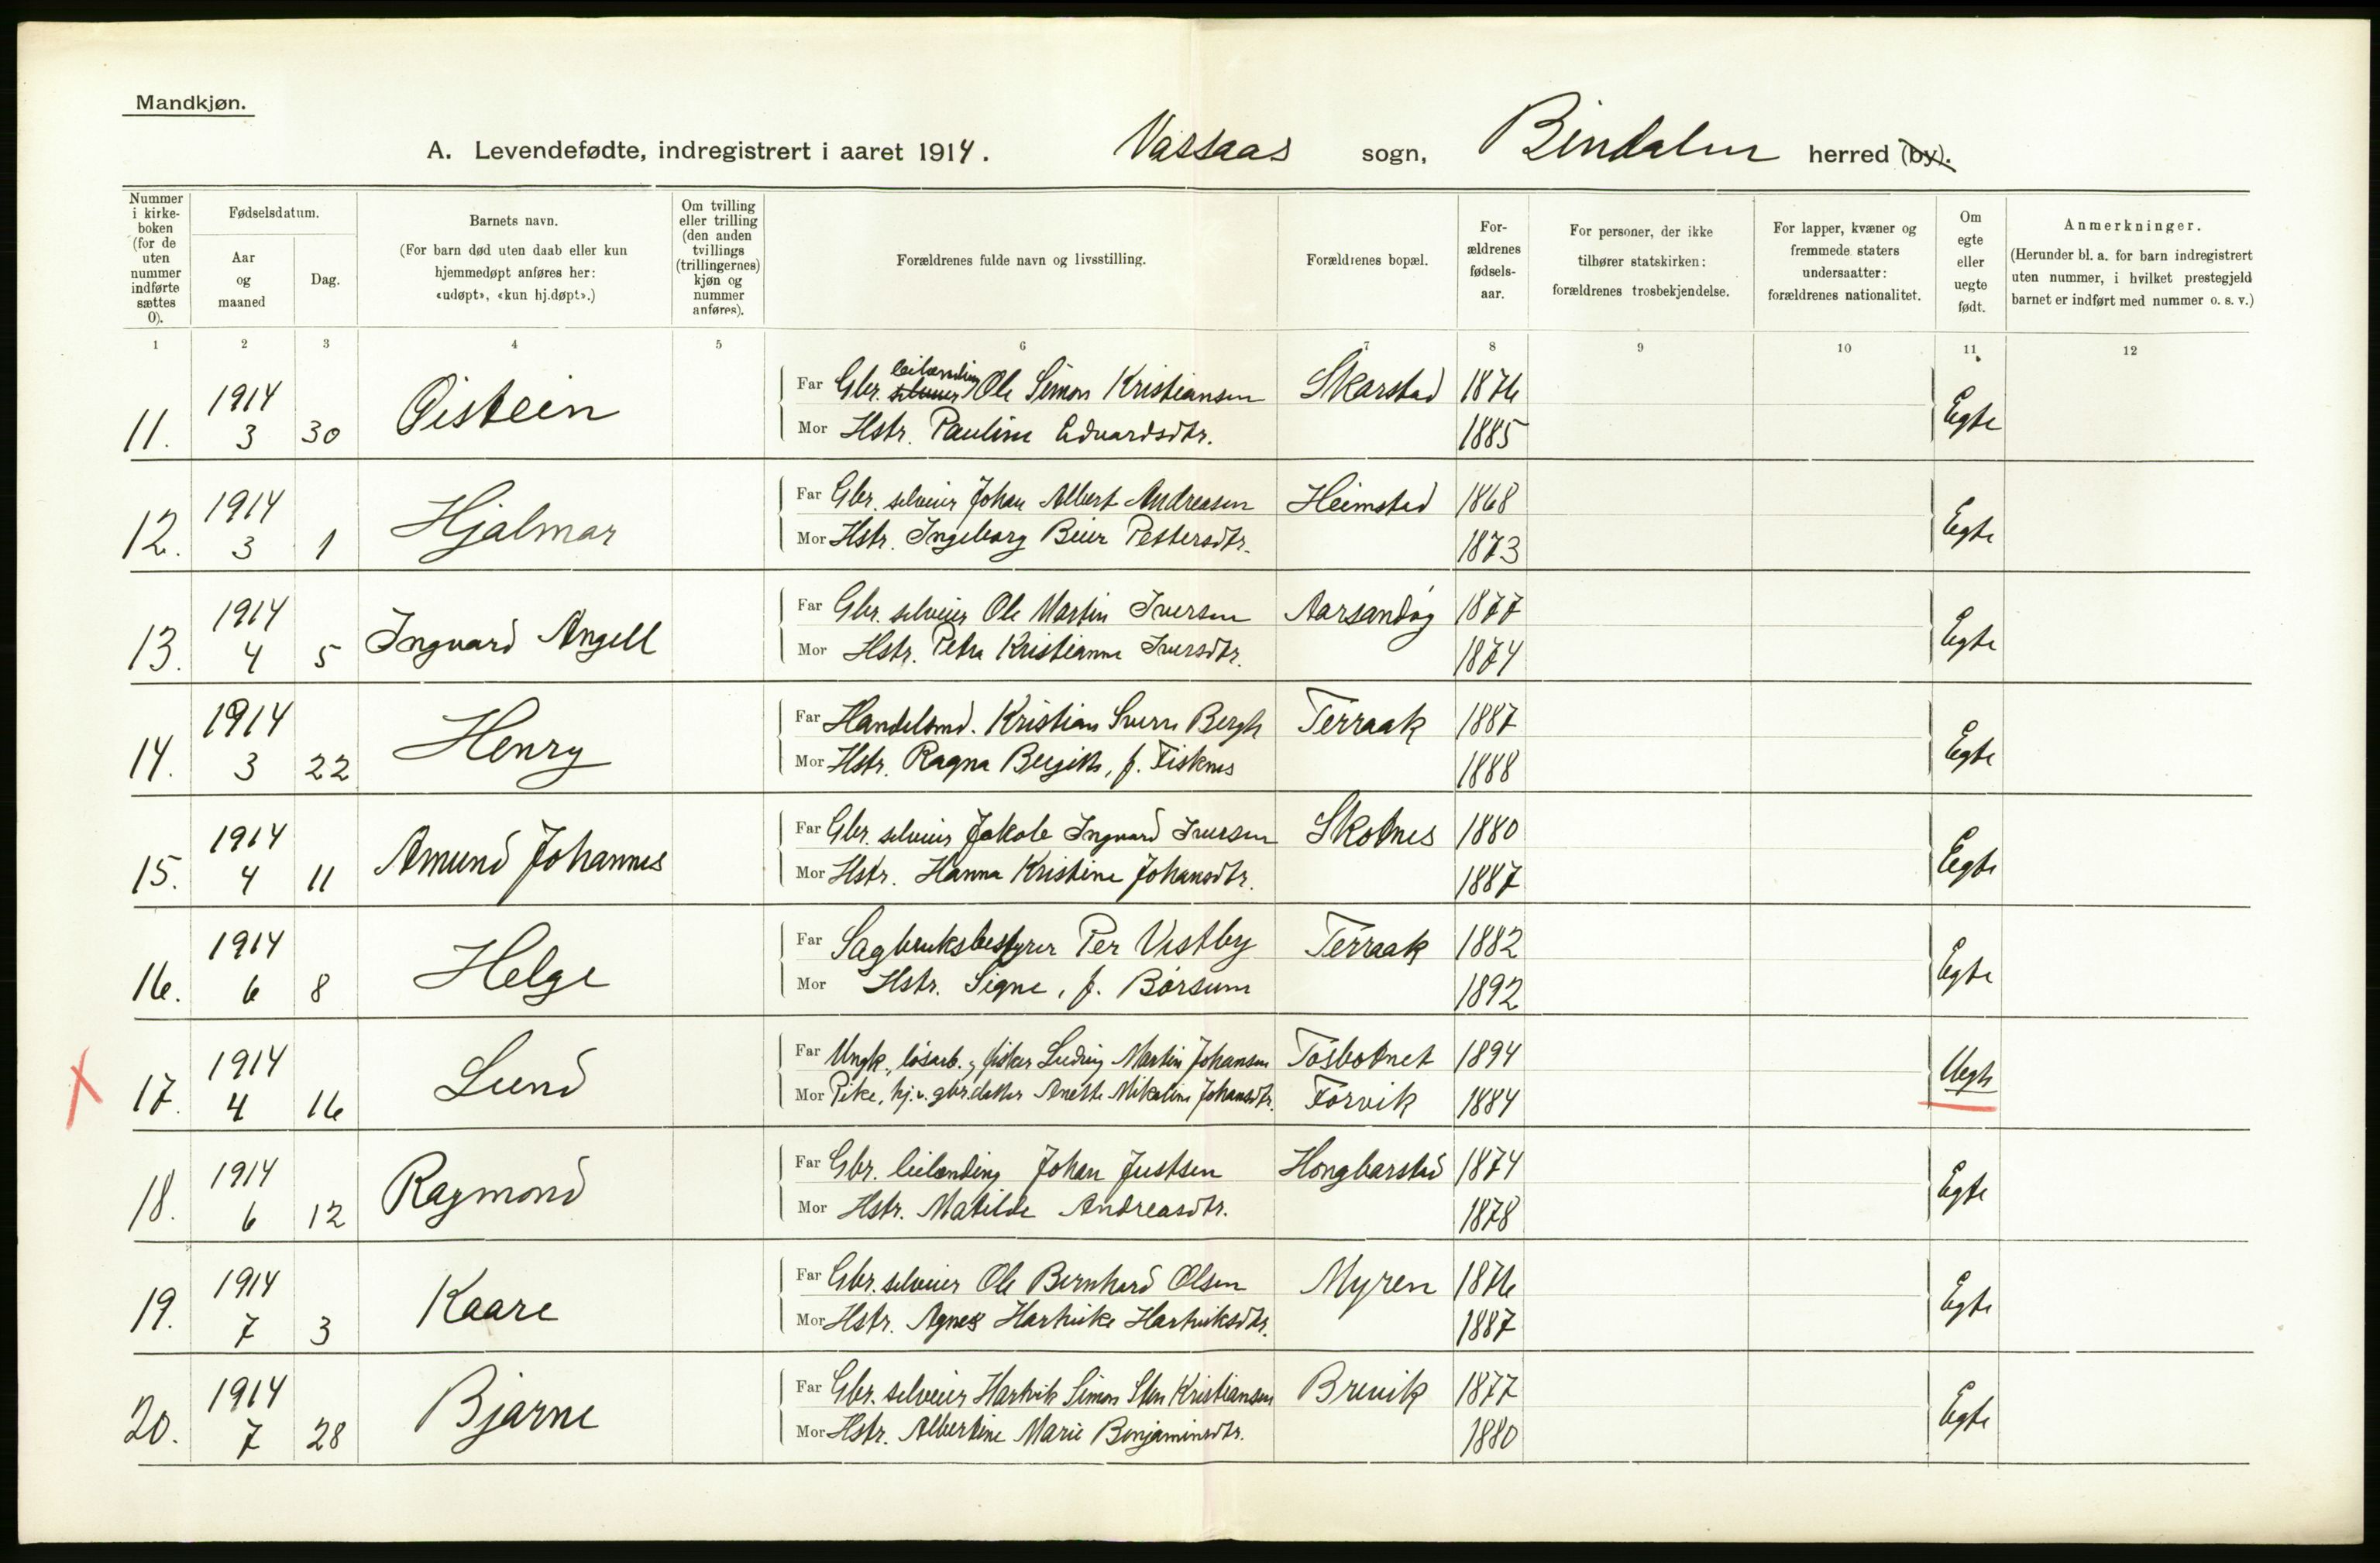 Mandkjøn.
A. Levendefødte, indregistrert i aaret 1914. Vassaas sogn, Bindalen herred (by).
Nummer i kirke-boken (for de uten nummer indførte sættes 0).
Fødselsdatum.
Aar og maaned
Dag.
Barnets navn.
(For barn død uten daab eller kun hjemmedøpt anføres her: «udøpt», «kun hj.døpt».)
Om tvilling eller trilling (den anden tvillings (trillingernes) kjøn og nummer anføres).
Forældrenes fulde navn og livsstilling.
Forældrenes bopæl.
For-ældrenes fødsels-aar.
For personer, der ikke tilhører statskirken: forældrenes trosbekjendelse.
For lapper, kvæner og fremmede staters undersaatter: forældrenes nationalitet.
Om egte eller uegte født.
Anmerkninger.
(Herunder bl. a. for barn indregistrert uten nummer, i hvilket prestegjeld barnet er indført med nummer o. s. v.)
1 2 3 4 5 6 7 8 9 10 11 12
11. 1914 3 30 Øistein
Far Gbr. selveier leilænding Ole Simon Kristiansen Skarstad 1876
Mor Hstr. Pauline Edvardsdtr. 1885 Egte
12. 1914 3 1 Hjalmar
Far Gbr. selveier Johan Albert Andreasen Heimstad 1868
Mor Hstr. Ingeborg Beier Pettersdtr. 1873 Egte
13. 1914 4 5 Ingvard Angell
Far Gbr. selveier Ole Martin Iversen Aarsandøy 1877
Mor Hstr. Petra Kristianne Iversdtr. 1874 Egte
14. 1914 3 22 Henry
Far Handelsmd. Kristian Sverre Bergh Terraak 1887
Mor Hstr. Ragna Bergith, f. Fisknes 1888 Egte
15. 1914 4 11 Amund Johannes
Far Gbr. selveier Jakob Ingvard Iversen Skotnes 1880
Mor Hstr. Hanna Kristine Johansdtr. 1887 Egte
16. 1914 6 8 Helge
Far Sagbruksbestyrer Per Vestby Terraak 1882
Mor Hstr. Signe, f. Børsum 1892 Egte
17. 1914 4 16 Lund
Far Ungk., løsarb. og fisker Ludvig Martin Johansen Tosbotnet 1894
Mor Pike, hj.v. gbr.datter Anette Mikaline Johansdtr. Forvik 1884 Uegte
18. 1914 6 12 Raymond
Far Gbr. leilænding Johan Justsen Hongbarstad 1874
Mor Hstr. Matilde Andreasdtr. 1878 Egte
19. 1914 7 3 Kaare
Far Gbr. selveier Ole Bernhard Olsen Myren 1876
Mor Hstr. Agnes Hartvike Hartviksdtr. 1887 Egte
20. 1914 7 28 Bjarne
Far Gbr. selveier Hartvik Simon Sten Kristiansen Brevik 1877
Mor Hstr. Albertine Marie Benjaminsdtr. 1880 Egte